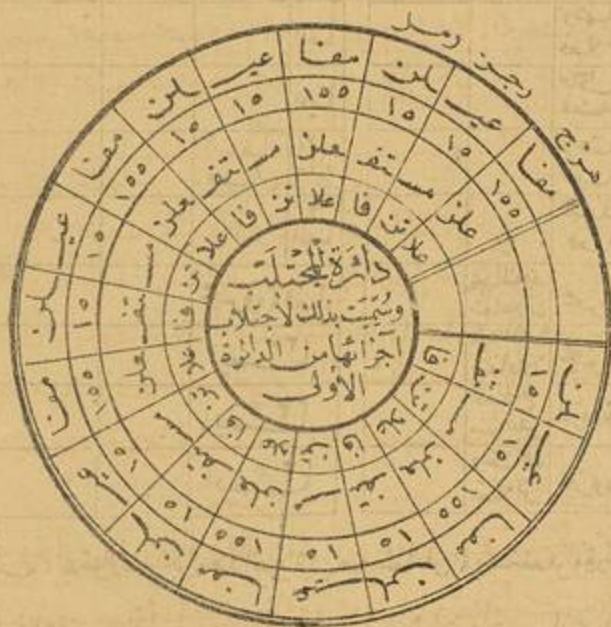 هزج رجز رمل
مفا عيـ لن مفا عيـ لن مفا عيـ لن مفا عيـ لن مفا عيـ لن مفا عيـ لن
١٥٥ ١٥ ١٥ ١٥٥ ١٥ ١٥ ١٥٥ ١٥ ١٥ ١٥٥ ١٥ ١٥ ١٥٥ ١٥ ١٥ ١٥٥ ١٥ ١٥
علن مسـ تفـ علن مسـ تفـ علن مسـ تفـ علن مسـ تفـ علن مسـ تفـ علن مسـ تفـ
علا تن فا علا تن فا علا تن فا علا تن فا علا تن فا علا تن فا
دائرة المجتلب
وسُمّيت بذلك لاجتلاب
أجزائها من الدائرة
الأولى